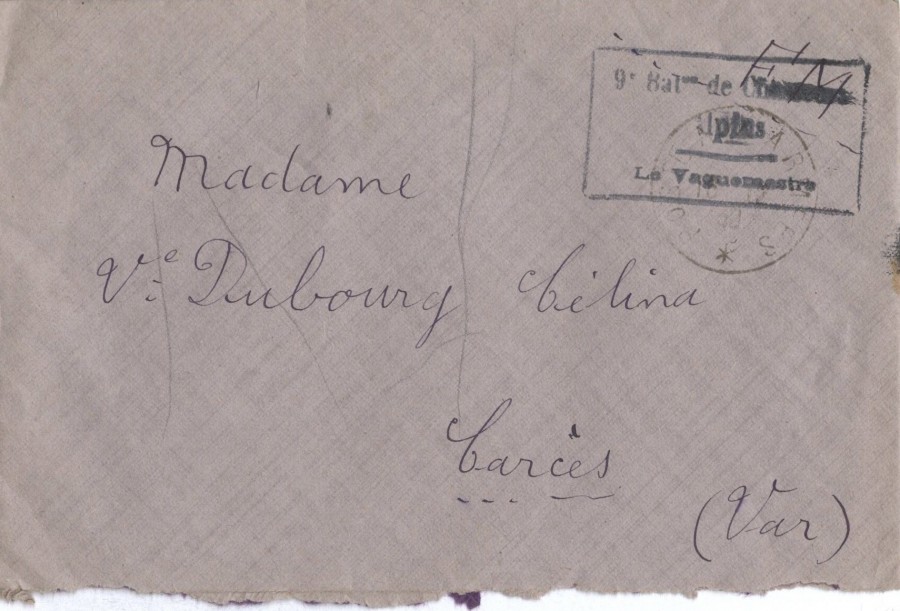 FM
9e Balon de Chasseurs
Alpins
Le Vaguemestre
Madame
Ve Dubourg Célina
Carcès
(Var)